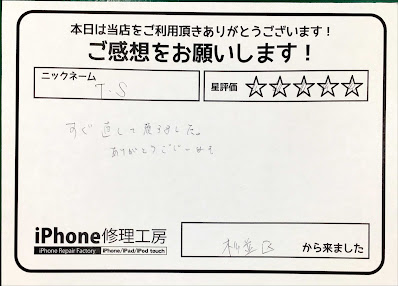 本日は当店をご利用頂きありがとうございます！
ご感想をお願いします！
ニックネーム
T.S
星評価 ☆☆☆☆☆
すぐ直して頂きました。
ありがとうございます
iPhone修理工房
iPhone Repair Factory iPhone/iPad/iPod touch
から来ました